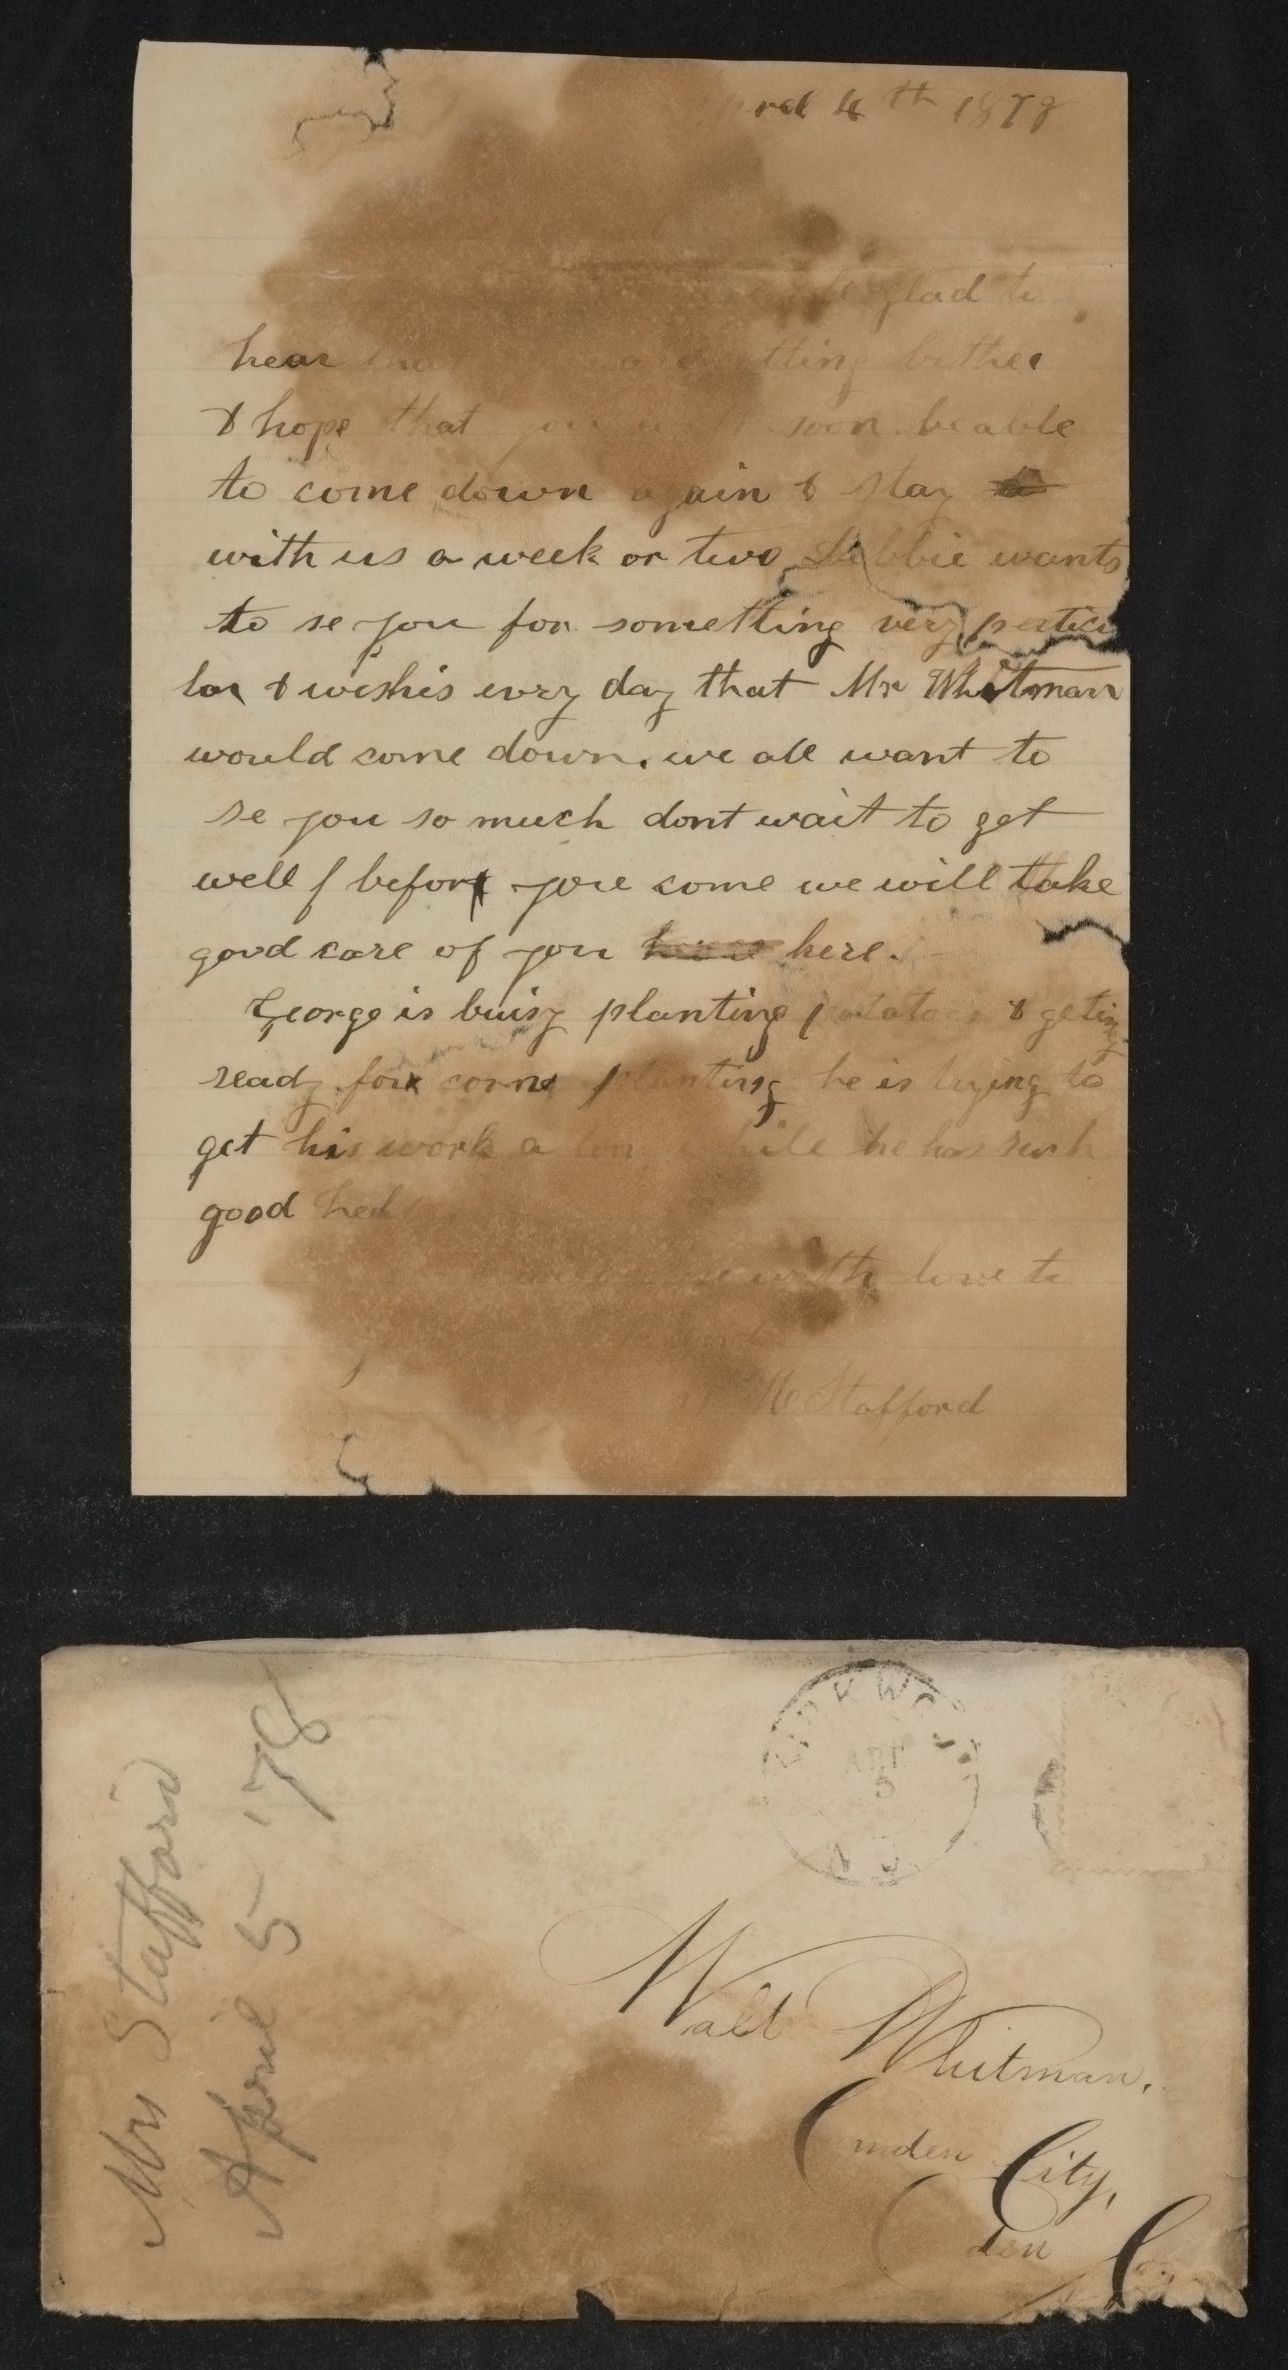 4th 1878
glad to
hear better
& hope that you soon be able
to come down again & stay
with us a week or two Debbie wants
to se you for something very particu
lar & wishis evry day that Mr Whitman
would come down. we all want to
se you so much dont wait to get
well before you come we will take
good care of you here.
George is buisy planting potatoes & geting
ready for corn planting he is trying to
get his work a long while he has such
good
with love to
Stafford
KIRKWOOD
APR
5
N J
Mrs Stafford
April 5 '78
Walt Whitman.
Camden City,